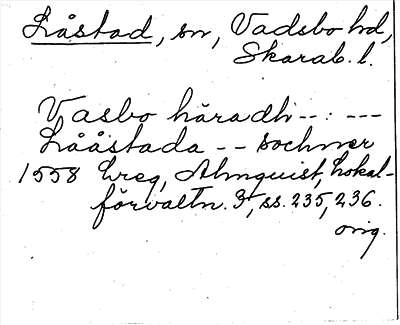 Låstad, sn, Vadsbo hd,
Skarab. l.
Vasbo häradh--: ---
Lååstada -- sochner
1558 Ereg, Almquist, Lokal-
förvaltn. 3, ss. 235, 236.
orig.